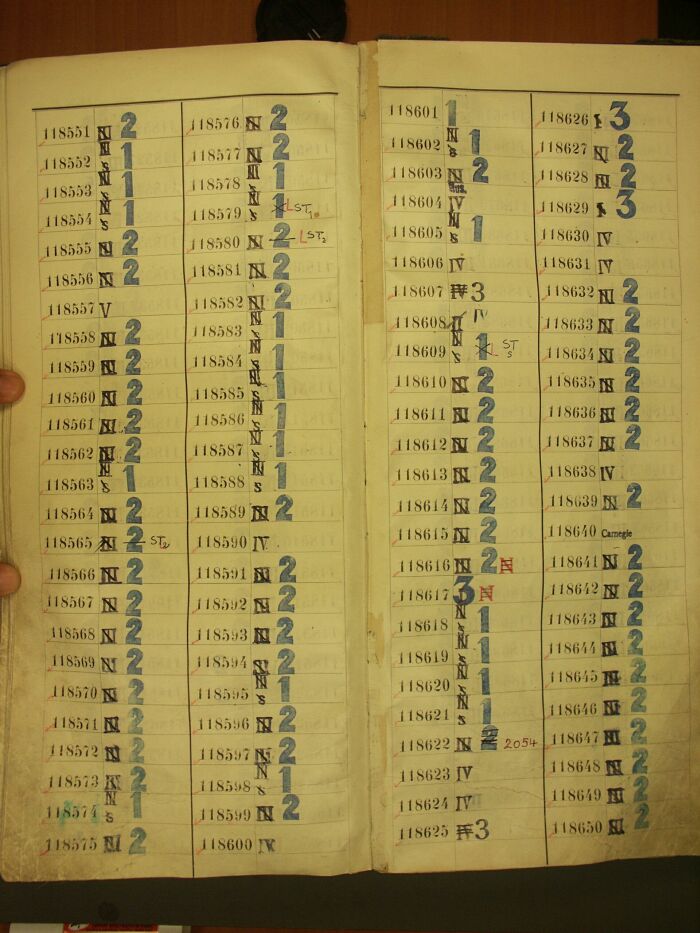 118551 N 2
118552 N s 1
118553 N s 1
118554 N s 1
118555 N 2
118556 N 2
118557 V
118558 N 2
118559 N 2
118560 N 2
118561 N 2
118562 N 2
118563 N s 1
118564 N 2
118565 N 2 ST2
118566 N 2
118567 N 2
118568 N 2
118569 N 2
118570 N 2
118571 N 2
118572 N 2
118573 N 2
118574 N s 1
118575 N 2
118576 N 2
118577 N 2
118578 N s 1
118579 N s 1 L ST
118580 N 2 L ST2
118581 N 2
118582 N 2
118583 N s 1
118584 N s 1
118585 N s 1
118586 N s 1
118587 N s 1
118588 N s 1
118589 N 2
118590 IV
118591 N 2
118592 N 2
118593 N 2
118594 N 2
118595 N s 1
118596 N 2
118597 N 2
118598 N s 1
118599 N 2
118600 IV
118601 1
118602 N s 1
118603 N 2
118604 IV
118605 N s 1
118606 IV
118607 IV 3
118608 IV
118609 N s 1 L ST s
118610 N 2
118611 N 2
118612 N 2
118613 N 2
118614 N 2
118615 N 2
118616 N 2 N
118617 3 N
118618 N s 1
118619 N s 1
118620 N s 1
118621 N s 1
118622 N 2 2054
118623 IV
118624 IV
118625 IV 3
118626 3
118627 N 2
118628 N 2
118629 3
118630 IV
118631 IV
118632 N 2
118633 N 2
118634 N 2
118635 N 2
118636 N 2
118637 N 2
118638 IV
118639 N 2
118640 Carnegie
118641 N 2
118642 N 2
118643 N 2
118644 N 2
118645 N 2
118646 N 2
118647 N 2
118648 N 2
118649 N 2
118650 N 2